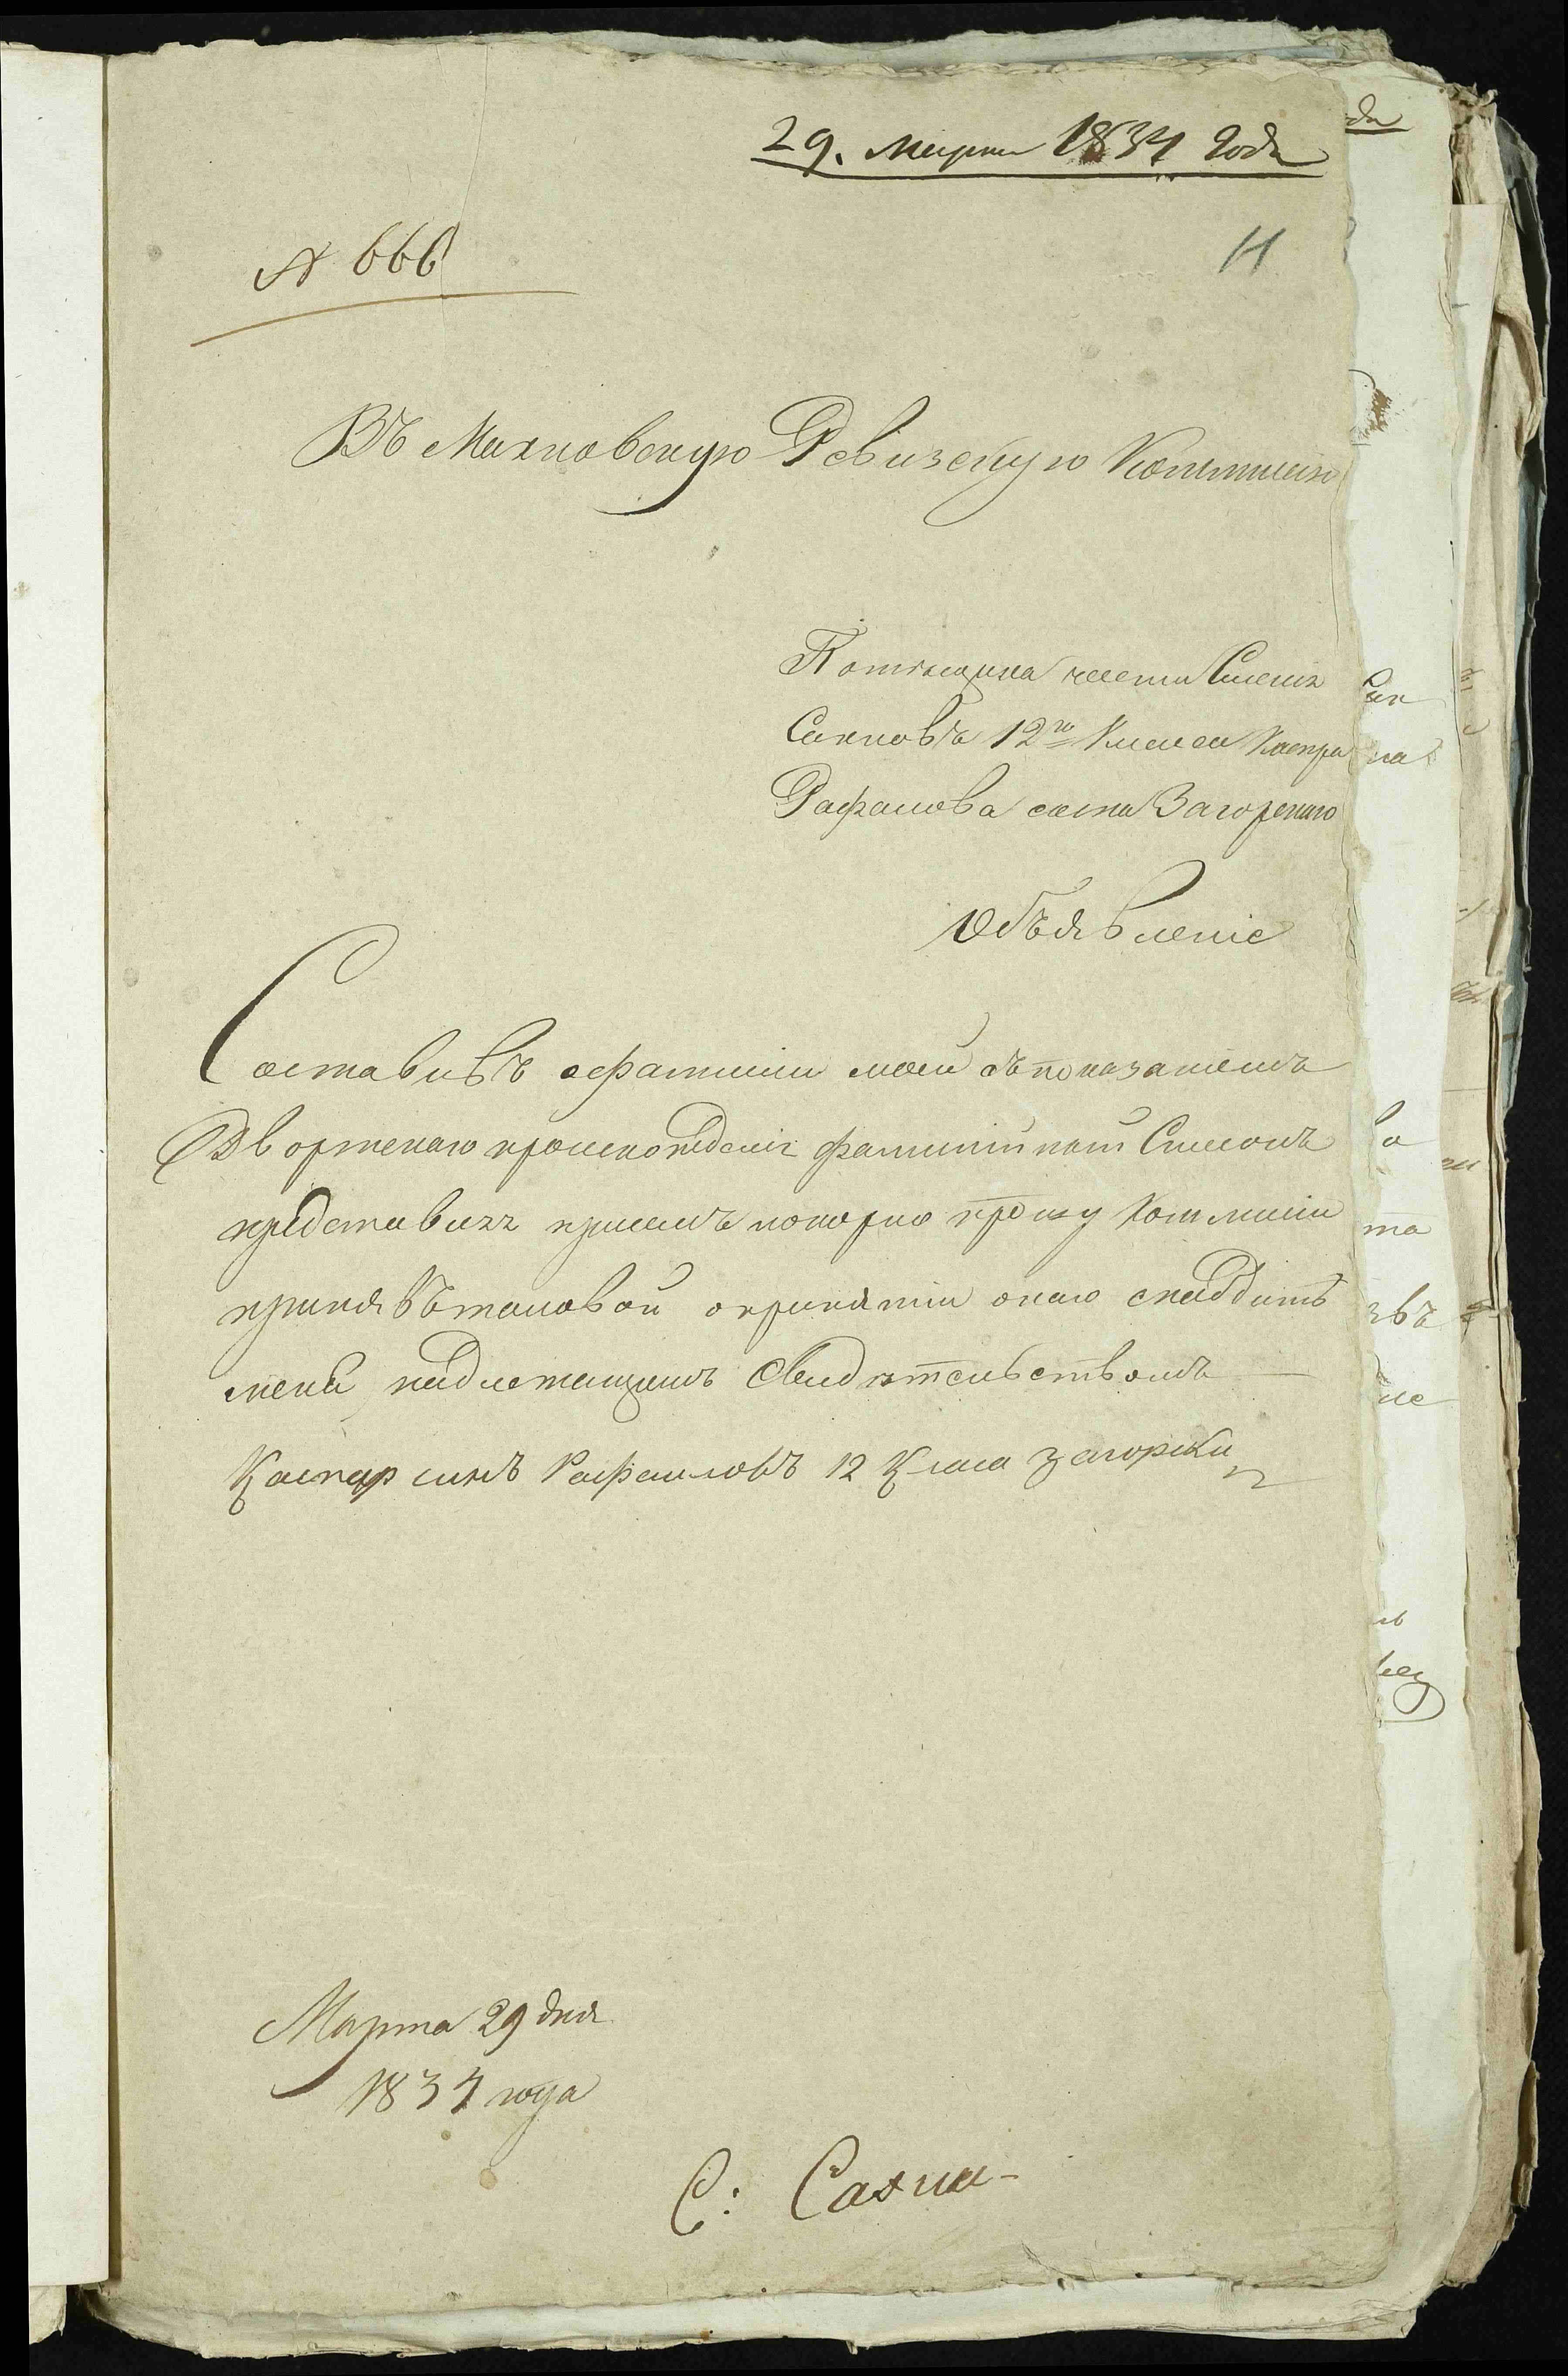 29. Марта 1834 Года
№ 666
11
Въ Махновскую Ревизскую Коммисію
Помѣщика части Села
Сахновъ 12го Класса Каспра
Рафалова сына Загорскаго
Объявленіе
Составивъ офамиліи моей съпоказаніемъ
Дворянскаго происхожденія фамилійной Списокъ
представляя присемъ покорно прошу Коммисіи
принявъ таковой опринятіи онаго снабдить
меня надлежащимъ Свидѣтельствомъ
Каспер синъ Рафаиловъ 12 Класа Загорски
Марта 29 дня
1834 года
С: Сахна